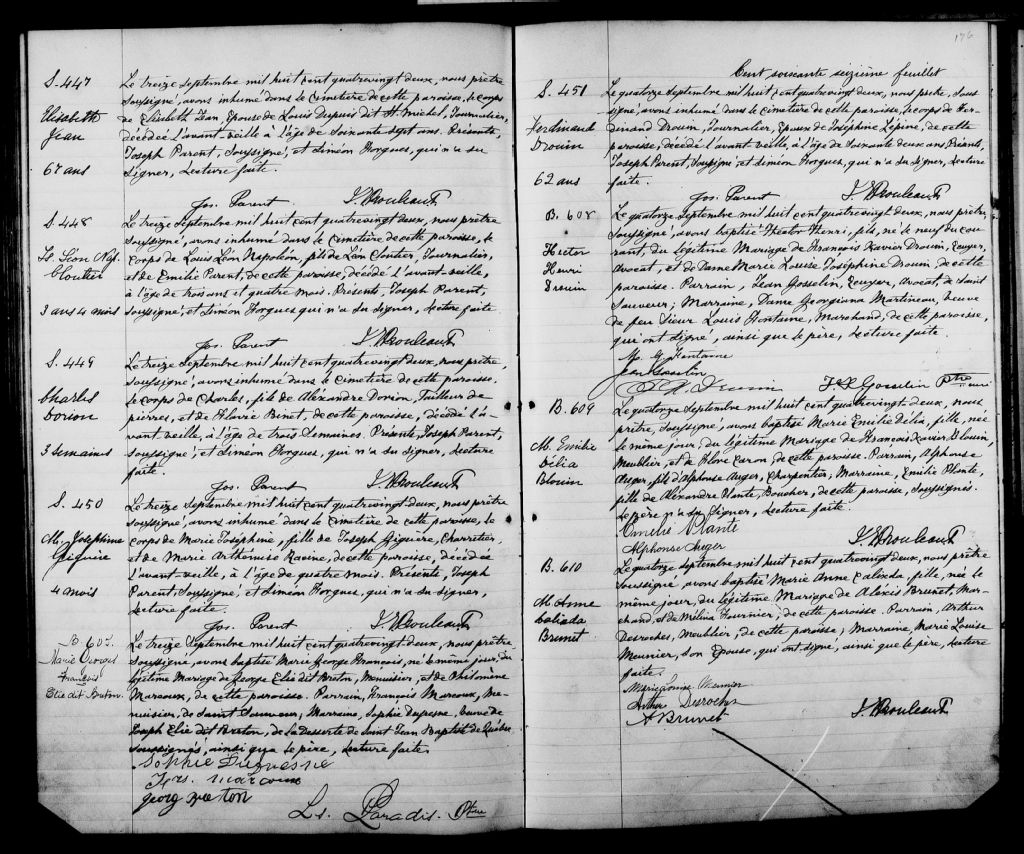 S. 447
Elisabeth
Jean
67 ans
Le treize Septembre mil huit cent quatrevingt deux, nous prêtre
Soussigné, avons inhumé dans le cimetière de cette paroisse, le corps
de Elisabeth Jean, Epouse de Louis Dupuis dit St. Michel, Journalier,
décédée l'avant-veille à l'âge de Soixante sept ans. Présents,
Joseph Parent, Soussigné, et Siméon Gorgues, qui n'a su
Signer, Lecture faite.
Jos. Parent
S. 448
Ls. Léon Nap.
Cloutier
3 ans 4 mois
Le treize Septembre mil huit cent quatrevingt deux, nous prêtre
Soussigné, avons inhumé dans le cimetière de cette paroisse, le
corps de Louis Léon Napoléon, fils de Léon Cloutier, Journalier,
et de Emilie Parent, de cette paroisse, décédé l'avant-veille,
à l'âge de trois ans et quatre mois. Présents, Joseph Parent,
Soussigné, et Siméon Gorgues qui n'a su Signer, lecture faite
Jos. Parent
S. 449
Charles
Dorion
3 Semaines
Le treize Septembre mil huit cent quatrevingt deux, nous prêtre
Soussigné, avons inhumé dans le cimetière de cette paroisse,
le corps de Charles, fils de Alexandre Dorion, Tailleur de
pierres, et de Flavie Binet, de cette paroisse, décédé l'a-
vant veille, à l'âge de trois Semaines. Présents, Joseph Parent,
Soussigné, et Siméon Gorgues, qui n'a su Signer, Lecture
faite.
Jos. Parent
S. 450
M. Josephine
Giguère
4 mois
Le treize Septembre mil huit cent quatrevingt deux, nous prêtre
Soussigné, avons inhumé dans le cimetière de cette paroisse, le
corps de Marie Joséphine, fille de Joseph Giguère, Charretier,
et de Marie Arthémise Racine, de cette paroisse, décédée
l'avant-veille, à l'âge de quatre mois. Présents, Joseph
Parent, Soussigné, et Siméon Gorgues, qui n'a su Signer,
Lecture faite.
Jos. Parent
Marie Georges
François
Elie dit Breton
Le treize Septembre mil huit cent quatrevingt deux, nous prêtre
Soussigné, avons baptisé Marie George François, né le même jour, du
légitime Mariage de George Elie dit Breton, Menuisier, et de Philomène
Marcoux, de cette paroisse. Parrain, François Marcoux, Me-
nuisier, de Saint Sauveur; Marraine, Sophie Dufresne, veuve de
Joseph Elie dit Breton, de la Desserte de Saint Jean Baptiste de Québec
Soussignés, ainsi que le père, Lecture faite.
Sophie
Frs. Marcoux
Ls. Paradis. Ptre
176
Cent soixante seizième feuillet
S. 451
Ferdinand
Drouin
62 ans
Le quatorze Septembre mil huit cent quatrevingt deux, nous prêtre, Sous-
signé, avons inhumé dans le cimetière de cette paroisse, le corps de Fer-
dinand Drouin, Journalier, Epoux de Joséphine Lepine, de cette
paroisse, décédé l'avant veille, à l'âge de Soixante deux ans, Présents,
Joseph Parent, Soussigné, et Siméon Gorgues, qui n'a su Signer, Lecture
faite.
Jos. Parent
B. 608
Hector
Henri
Drouin
Le quatorze Septembre mil huit cent quatrevingt deux, nous prêtre,
Soussigné, avons baptisé Hector Henri, fils, né le neuf du cou-
rant, du légitime Mariage de François Xavier Drouin, Ecuyer,
Avocat, et de Dame Marie Louise Joséphine Drouin, de cette
paroisse. Parrain, Jean Gosselin, Ecuyer, Avocat, de Saint
Sauveur; Marraine, Dame Georgiana Martineau, veuve
de feu Sieur Louis Fontaine, Marchand, de cette paroisse,
qui ont signé, ainsi que le père, Lecture faite.
Jean Gosselin
F. X. Gosselin Ptre
B. 609
M. Emilie
Délia
Blouin
Le quatorze Septembre mil huit cent quatrevingt deux, nous
prêtre, Soussigné, avons baptisé Marie Emilie Délia, fille, née
le même jour, du légitime Mariage de François Xavier Blouin,
Meublier, et de Flore Caron, de cette paroisse. Parrain, Alphonse
Auger, fils d'Alphonse Auger, Charpentier; Marraine, Emilie Plante,
fille de Alexandre Plante, Boucher, de cette paroisse, Soussignés.
Le père n'a su Signer, Lecture faite.
Emilie Plante
Alphonse Auger
B. 610
M. Anne
Calixda
Brunet
Le quatorze Septembre mil huit cent quatrevingt deux, nous prêtre
Soussigné avons baptisé Marie Anne Calixda, fille, née le
même jour, du légitime Mariage de Alexis Brunet, Mar-
chand, et de Mélina Fournier, de cette paroisse. Parrain, Arthur
Desroches, Meublier, de cette paroisse; Marraine, Marie Louise
Meunier, son Epouse, qui ont signé, ainsi que le père, Lecture
faite.
Marie Louise Meunier
Arthur Desroches
A Brunet